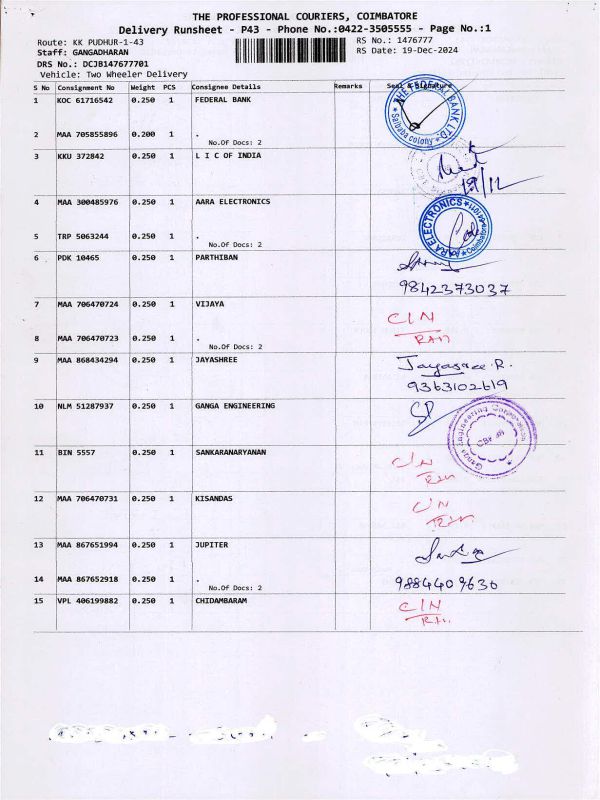 THE PROFESSIONAL COURIERS, COIMBATORE
Delivery Runsheet - P43 - Phone No.:0422-3505555 - Page No.:1
Route: KK PUDHUR-1-43 RS No.: 1476777
Staff: GANGADHARAN RS Date: 19-Dec-2024
DRS No.: DCJB147677701
Vehicle: Two Wheeler Delivery
S No Consignment No Weight PCS Consignee Details Remarks Seal & Signature
1 KOC 61716542 0.250 1 FEDERAL BANK
THE FEDERAL BANK LTD. Saibaba colony
2 MAA 705855896 0.200 1 .
No.Of Docs: 2
3 KKU 372842 0.250 1 L I C OF INDIA
19/12
4 MAA 300485976 0.250 1 AARA ELECTRONICS
AARA ELECTRONICS Coimbatore
5 TRP 5063244 0.250 1 .
No.Of Docs: 2
6 PDK 10465 0.250 1 PARTHIBAN
9842373037
7 MAA 706470724 0.250 1 VIJAYA C/N
8 MAA 706470723 0.250 1 .
No.Of Docs: 2
9 MAA 868434294 0.250 1 JAYASHREE Jayasree.R.
9363102619
10 NLM 51287937 0.250 1 GANGA ENGINEERING
Ganga Engineering Corporation
11 BIN 5557 0.250 1 SANKARANARYANAN C/N
12 MAA 706470731 0.250 1 KISANDAS C/N
13 MAA 867651994 0.250 1 JUPITER
14 MAA 867652918 0.250 1 . 9884409630
No.Of Docs: 2
15 VPL 406199882 0.250 1 CHIDAMBARAM C/N